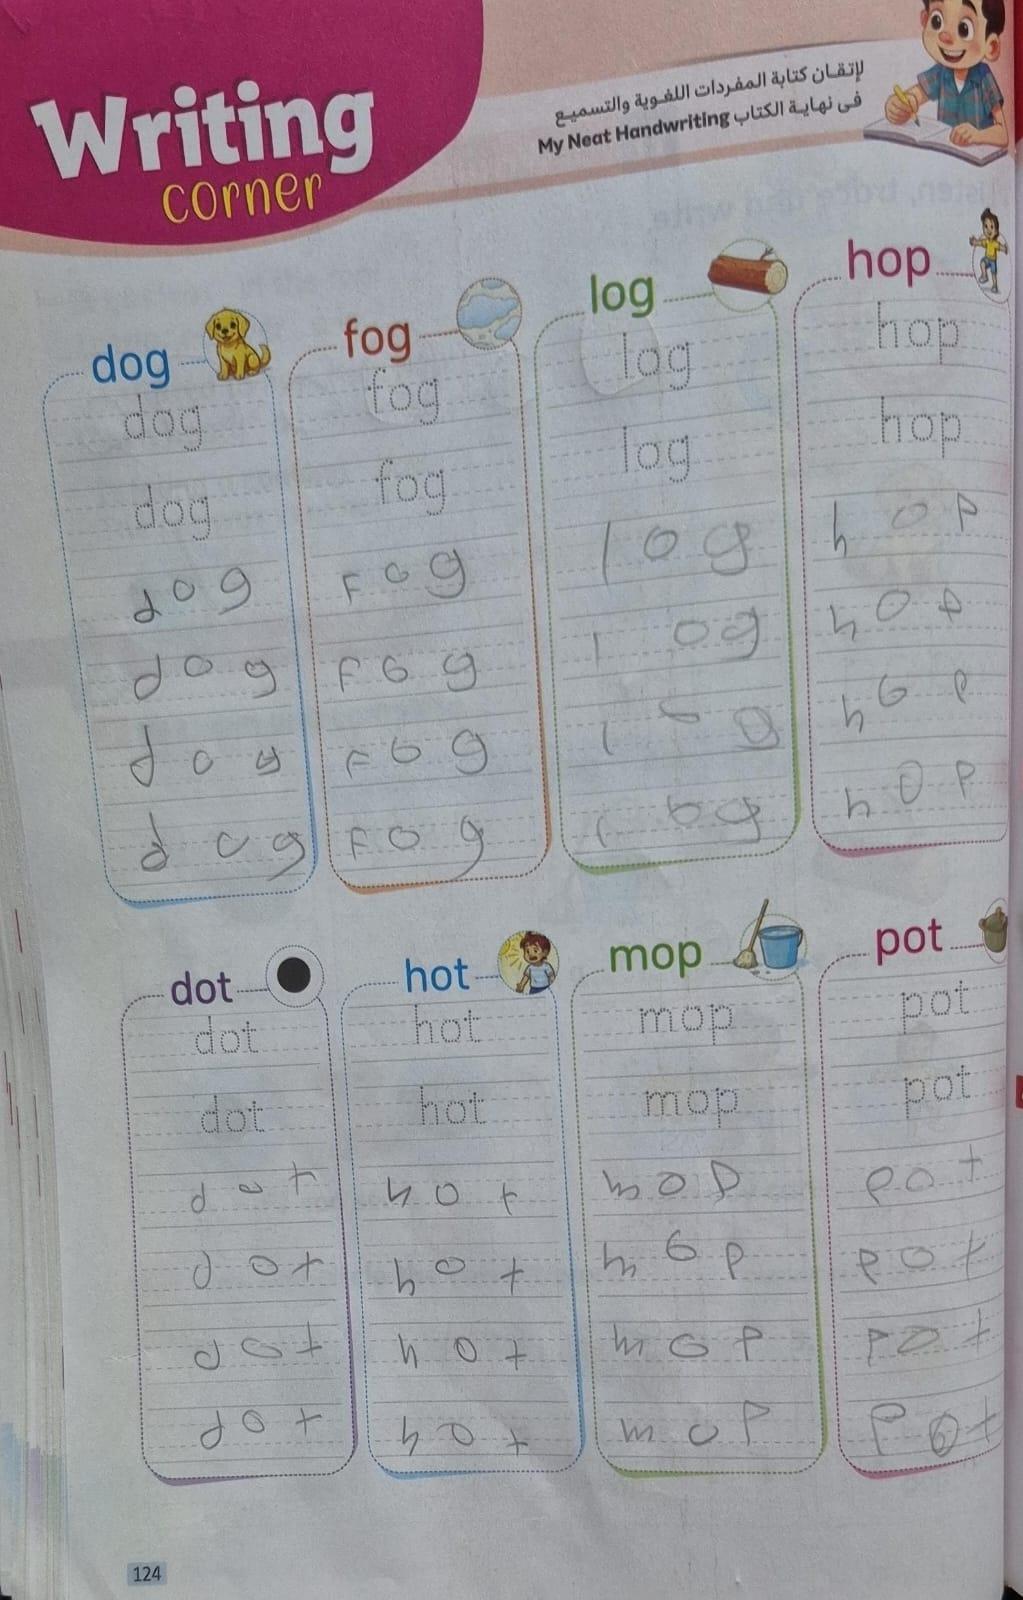 Writing
corner
لإتقـان كتابة المفردات اللغوية والتسميع
فى نهاية الكتاب My Neat Handwriting
dog
dog
dog
dog
dog
dog
dog
fog
fog
fog
Fog
Fog
Fog
Fog
log
log
log
log
log
log
log
hop
hop
hop
hop
hop
hop
hop
dot
dot
dot
dot
dot
dot
dot
hot
hot
hot
hot
hot
hot
hot
mop
mop
mop
mop
mop
mop
mop
pot
pot
pot
pot
pot
pot
pot
124